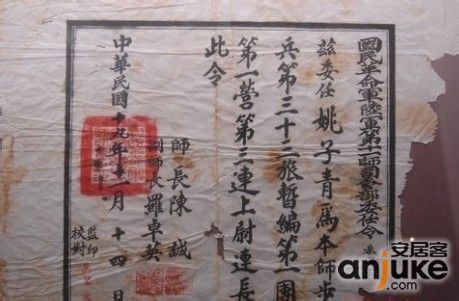 國民革命軍陸軍第十一師司令部委任令
茲委任姚子青為本師步
兵第三十三旅暫編第一團
第一營第三連上尉連長
此令
師長陳誠
副師長羅卓英
中華民國十九年十一月十四日
監印
校對
安居客
anjuke.com